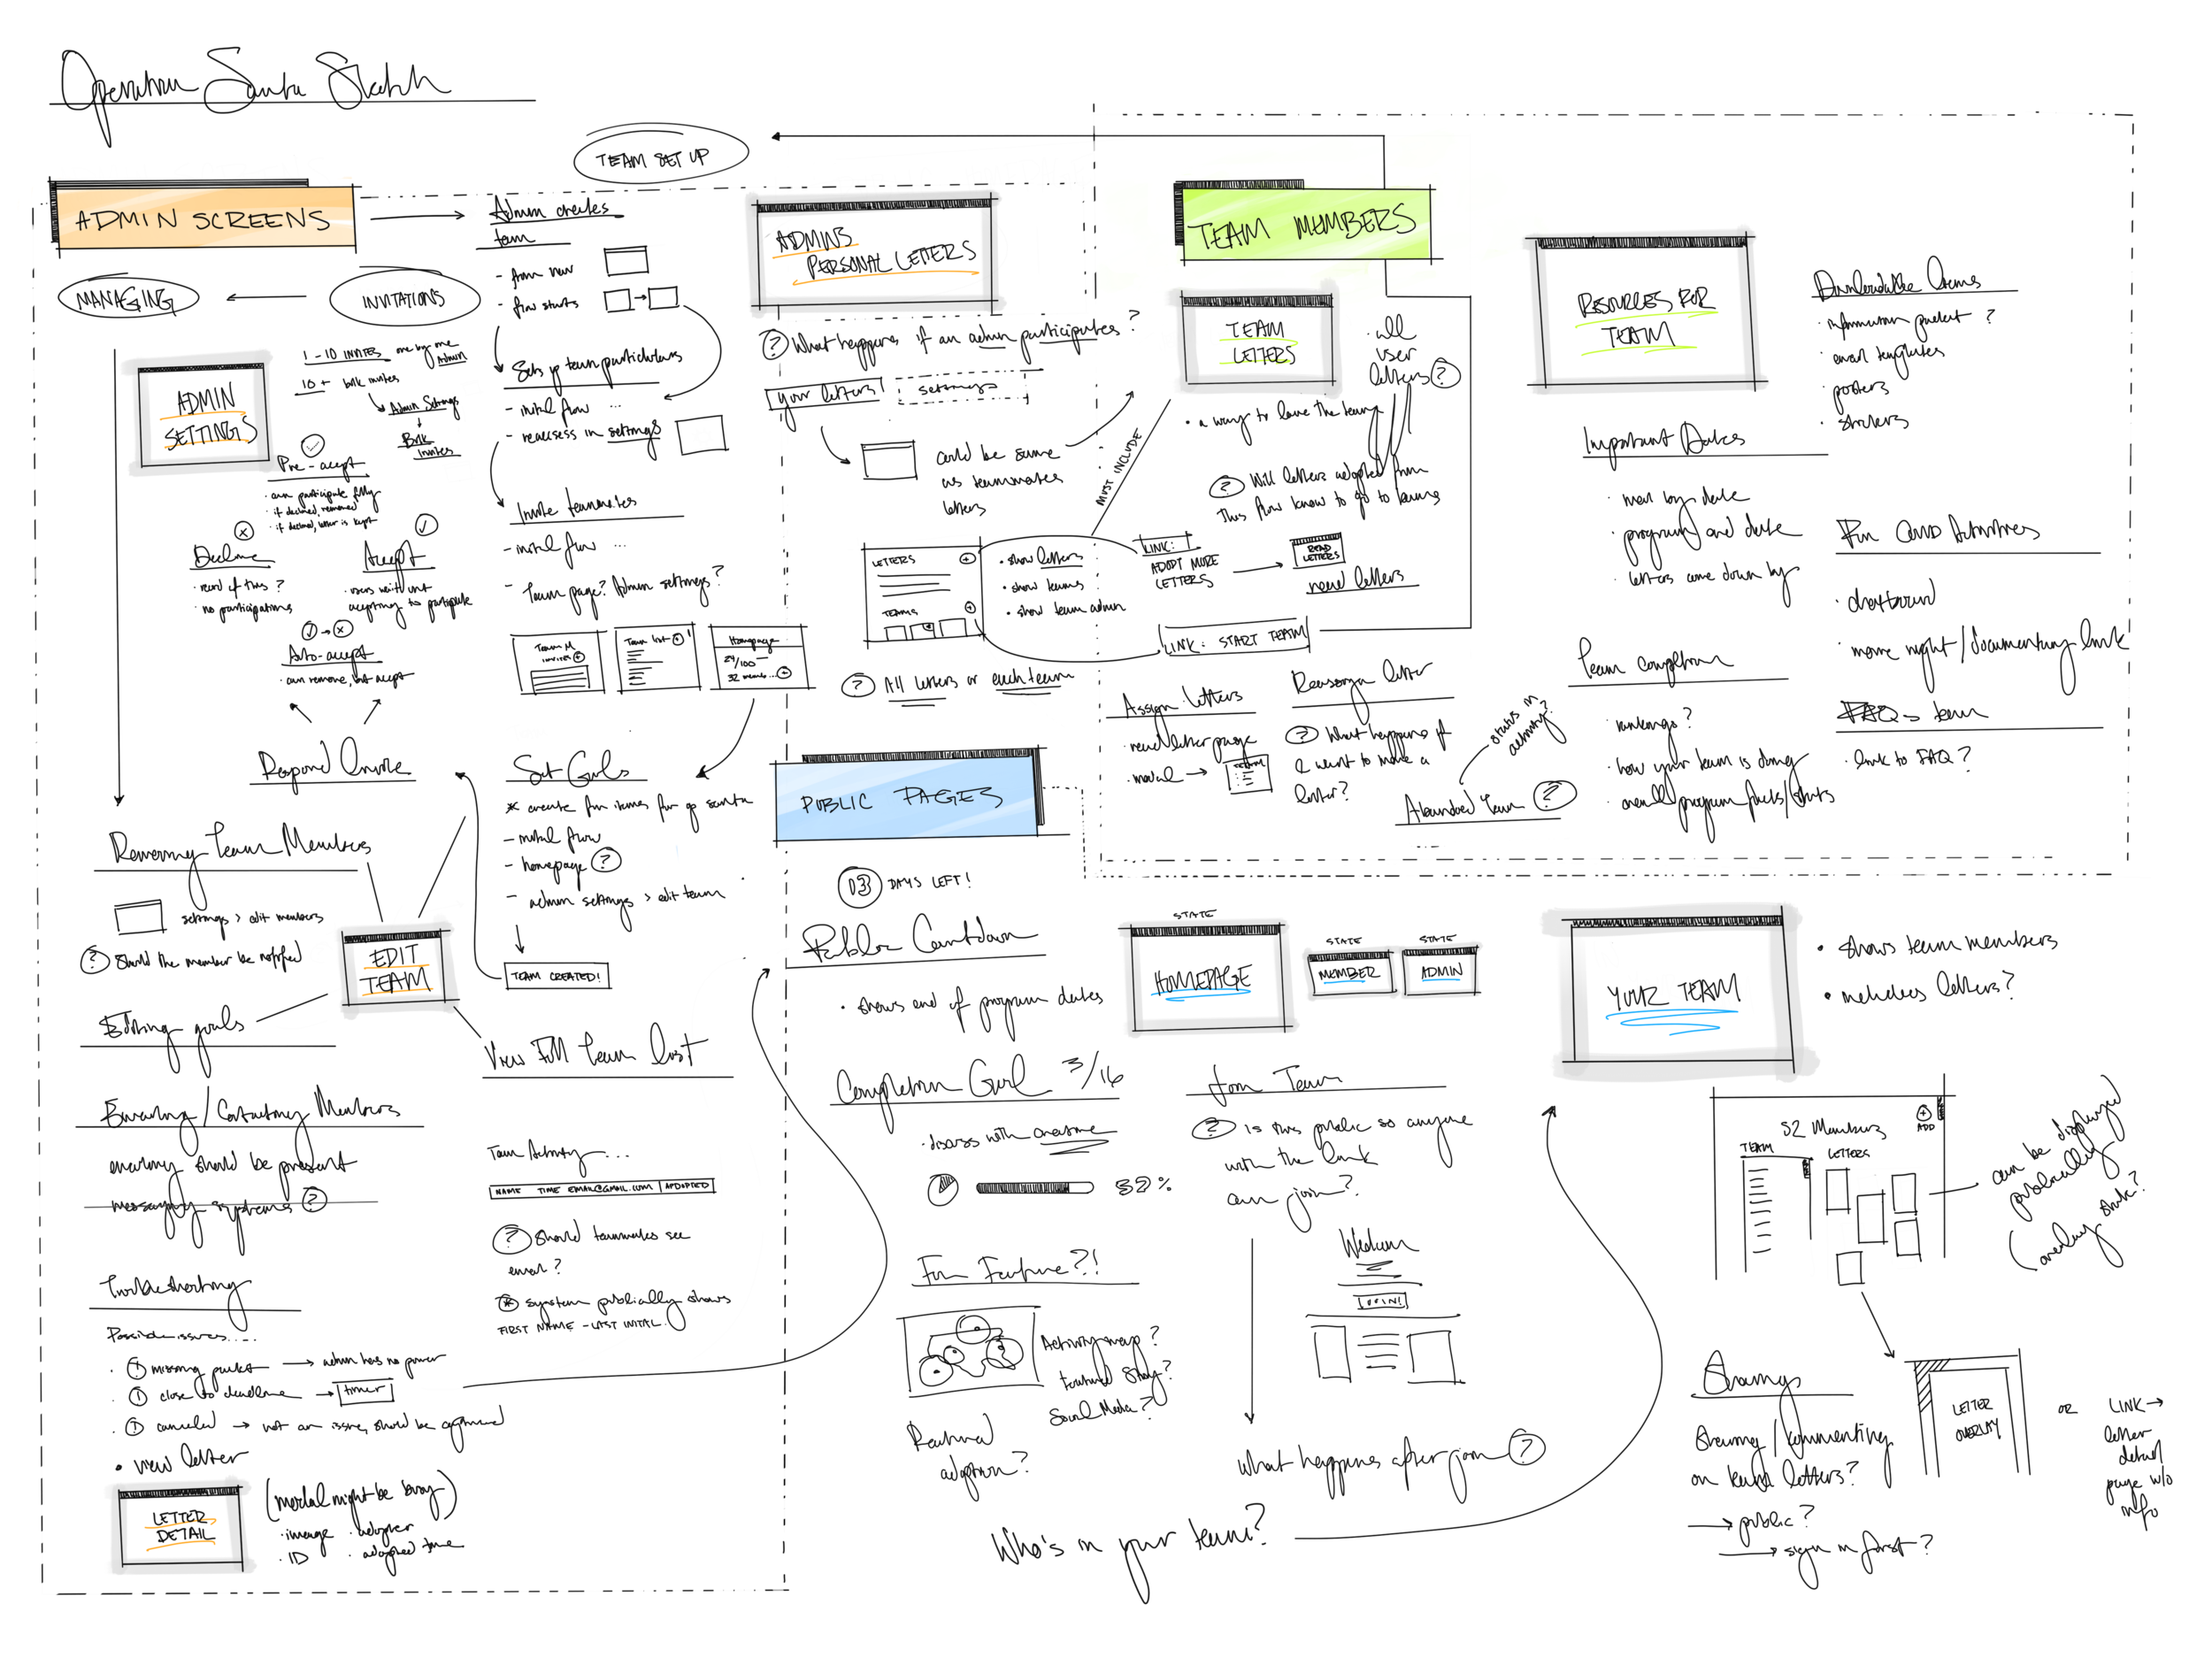 Operation Santa Sketch
TEAM SET UP
ADMIN SCREENS
Admin creates
team
- from new
- from starts
MANAGING
INVITATIONS
1 - 10 INVITES one by one
Admin
10+ bulk invites
Admin Settings
Bulk
Invites
ADMIN
SETTINGS
Pre-accept
· can participate fully
· if declined, removed
· if declined, letter is kept
Decline
· record of this?
· no participations
Accept
· users wait until
accepting to participate
Auto-accept
· can remove, not accept
Respond Invite
Sets up team particulars
- initial flow ...
- reaccess in settings
Invite teammates
- initial flow ...
- Team page? Admin settings?
Team M
invites
Team list
Homepage
24/100
32 memb...
Set Goals
* create fun items for op santa
- initial flow
- homepage ?
- admin settings > edit team
TEAM CREATED!
Removing Team Members
settings > edit members
? Should the member be notified
EDIT
TEAM
Editing goals
View Full Team List
Emailing / Contacting Members
emailing should be present
messaging systems ?
Team Activity...
NAME TIME EMAIL@GMAIL.COM ADOPTED
? Should teammates see
email?
* system publically shows
FIRST NAME - LAST INITIAL
Troubleshooting
Possible issues....
· ! missing packet → admin has no power
· ! close to deadline → timer
· ! canceled → not an issue, should be
• view letter
LETTER
DETAIL
(modal might be busy)
· image · adopter
· ID · adopted time
ADMINS
PERSONAL LETTERS
? What happens if an admin participates?
your letters! settings
could be same
as teammates
letters
LETTERS
TEAMS
• show letters
• show teams
• show team admin
? All letters or each team
TEAM MEMBERS
TEAM
LETTERS
· all
user
letters ?
• a way to leave the team
MUST INCLUDE
? Will letters adopted from
this flow know to go to teams
LINK:
ADOPT MORE
LETTERS
READ
LETTERS
read letters
LINK: START TEAM
Assign letters
· read letter page
· modal →
TEAM
Reassign letter
? What happens if
I want to make a
letter?
status in
activity?
Abandoned Team ?
RESOURCES FOR
TEAM
Downloadable Items
· information packet ?
· email templates
· posters
· stickers
Important Dates
· mail by date
· program end date
· letters come down by
Fun Activities
· movie night / documentary link
Team Completion
· rankings?
· how your team is doing
· overall program facts/stats
FAQ - team
· link to FAQ?
PUBLIC PAGES
03 DAYS LEFT!
Public Countdown
· shows end of program dates
STATE
HOMEPAGE
STATE
MEMBER
STATE
ADMIN
YOUR TEAM
• shows team members
• includes letters?
Completion Goal 3/16
· discuss with
82%
Join Team
? is this public so anyone
with the link
can join?
Welcome
JOIN!
what happens after join ?
Fun Feature?!
Activity map?
featured Story?
Social Media?
adoption?
Who's in your team?
52 Members
ADD
TEAM
LETTERS
can be displayed
publically
(overlay state?
Sharing
Sharing / Commenting
on team letters?
→ public?
→ sign in first?
LETTER
OVERLAY
OR
LINK →
letter
detail
page w/o
info